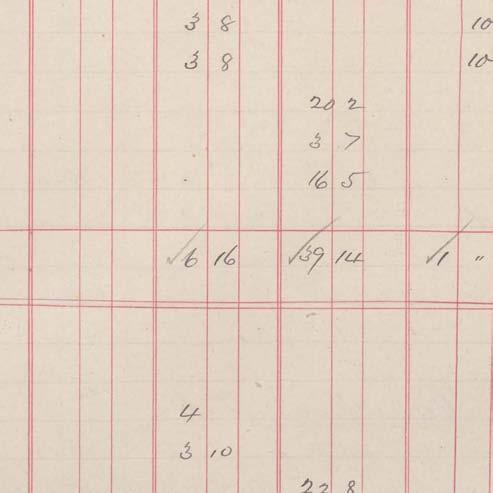 3 8 10
3 8 10
20 2
3 7
16 5
✓6 16 ✓39 14 ✓1 "
4
3 10
22 8